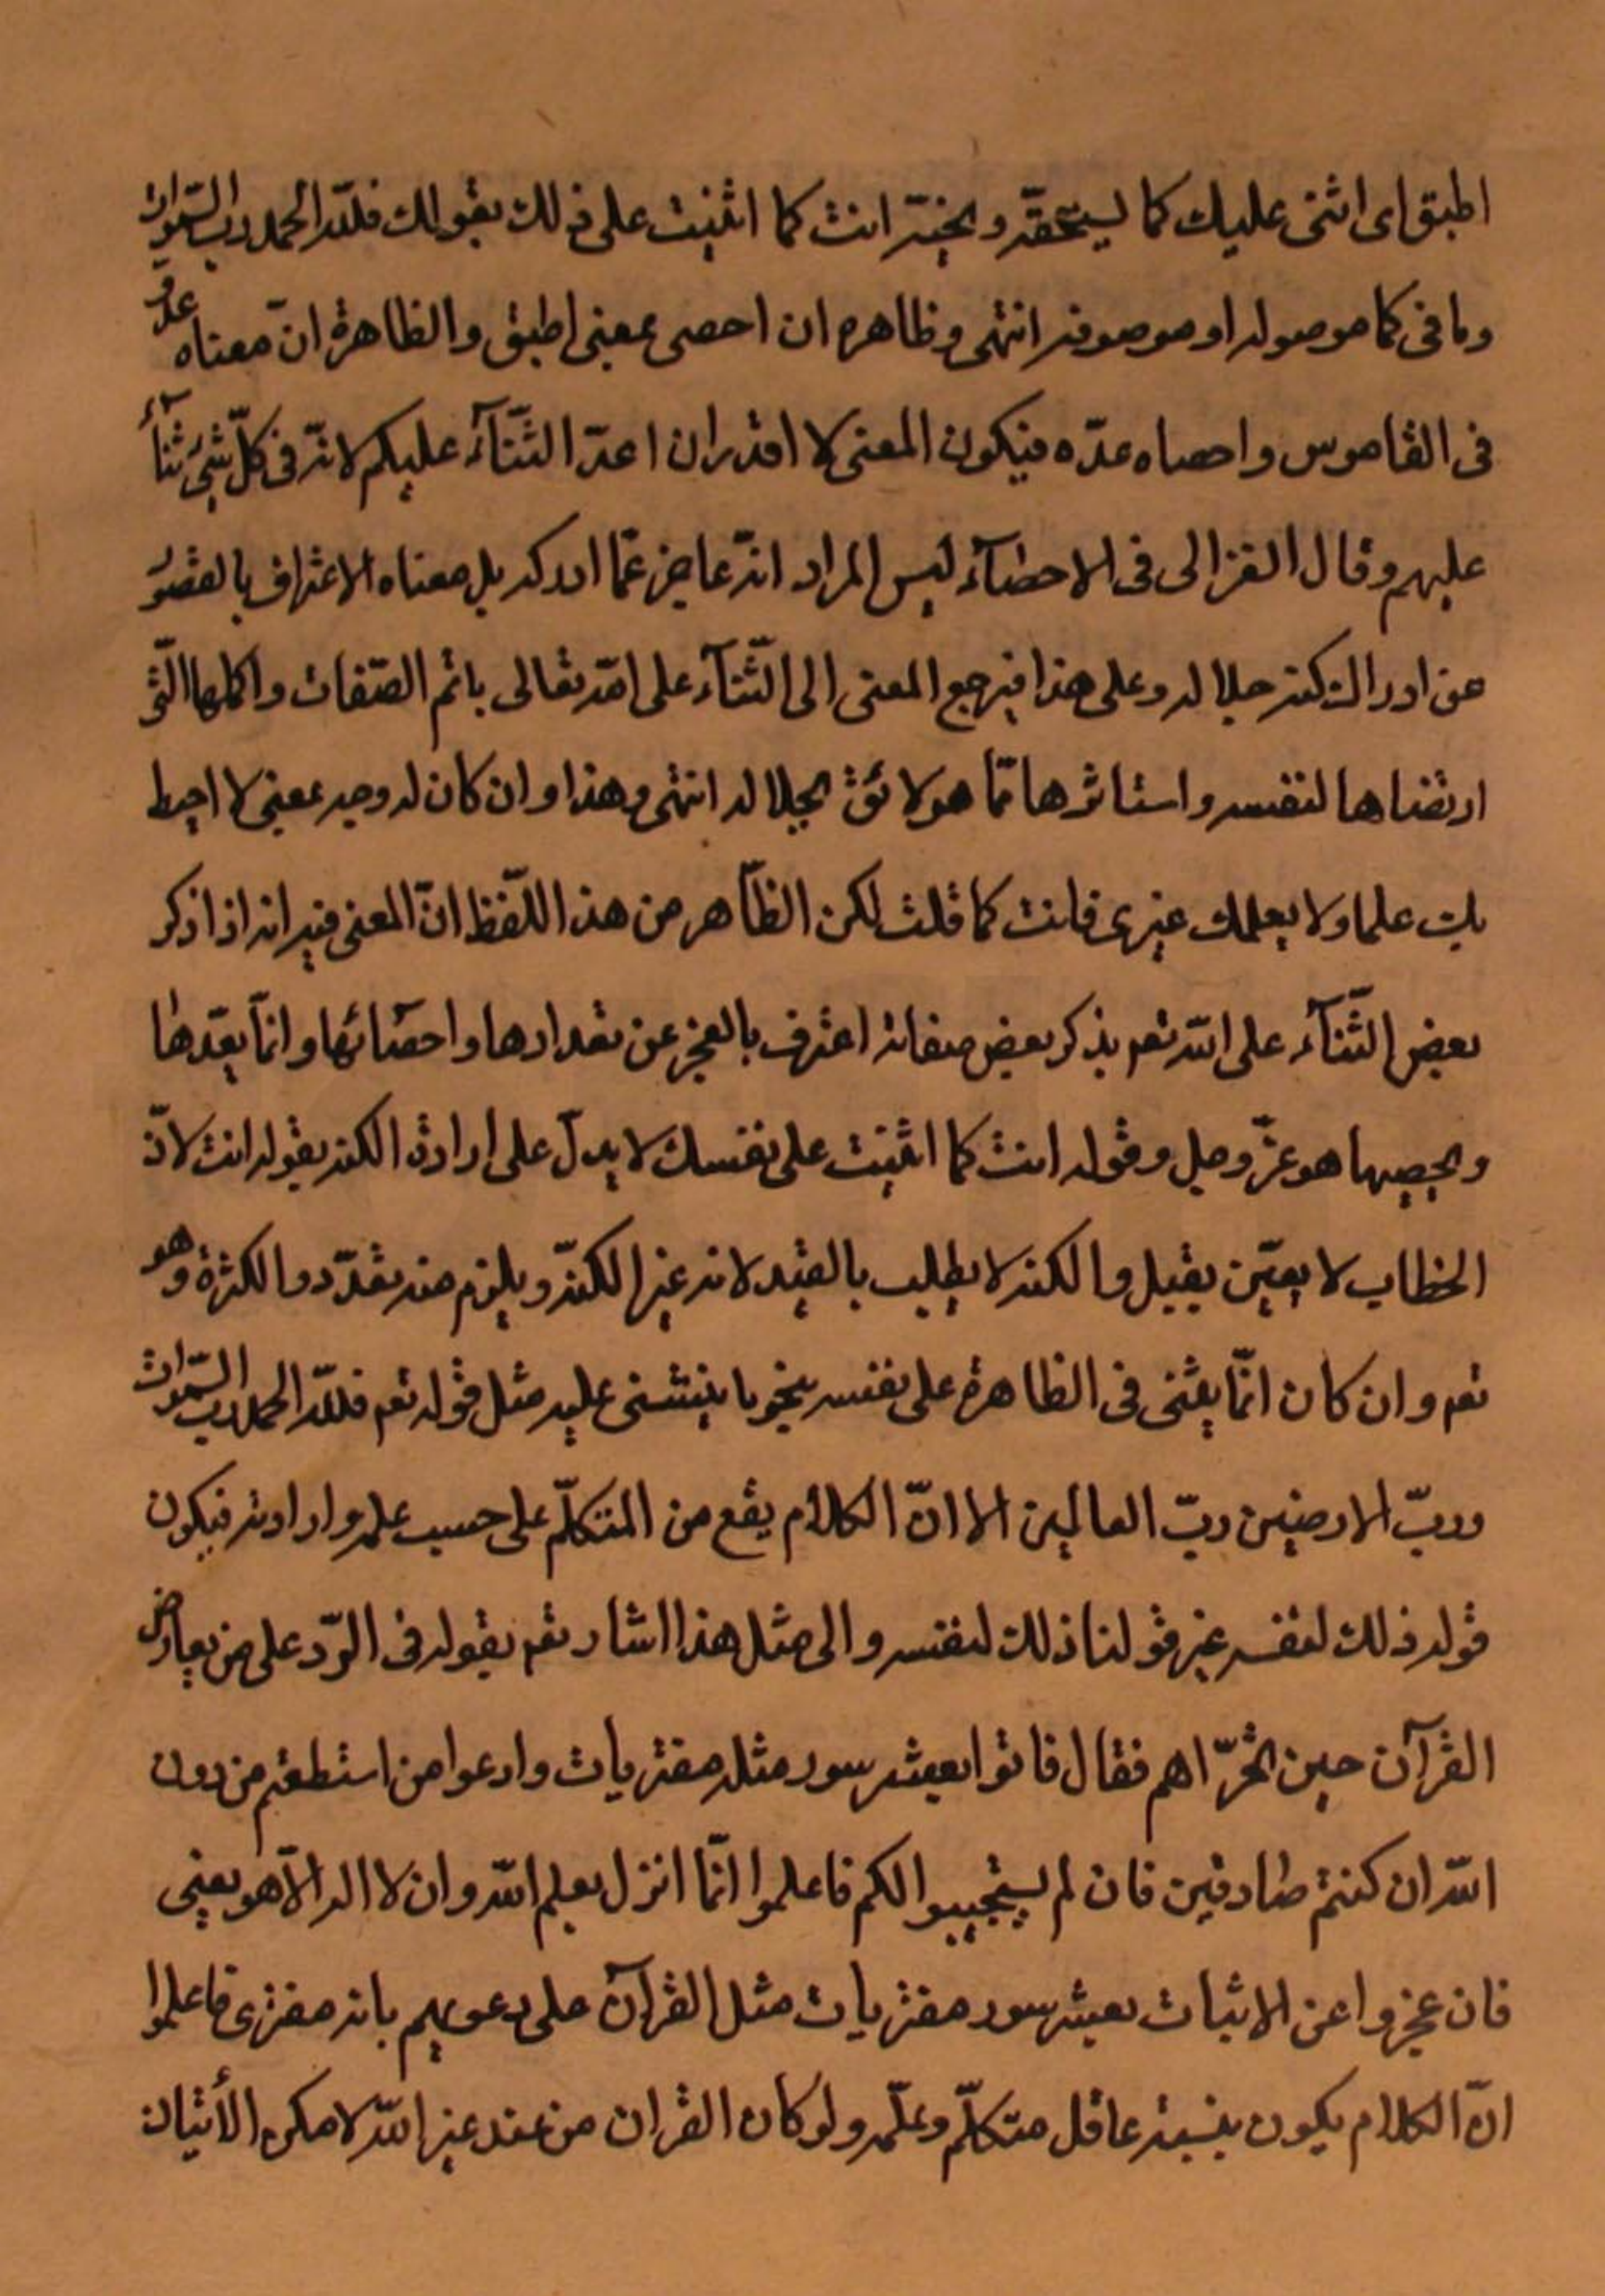 اطيق اى اثنى عليك كما يستحقّه و بحبّه انت كما اثنيت على ذلك بقولك فللّه الحمد ربّ السّموات
وما فى كما موصوله او موصوفه انتهى وظاهره ان احصى بمعنى اطيق والظاهرة انّ معناه عدّ
فى القاموس واحصاه عدّه فيكون المعنى لا اقدر ان اعدّ الثّنآء عليكم لانّه فى كلّ شئ ثنآء
عليهم وقال الغزالى فى الاحصآء ليس المراد انّه عاجز عمّا ادركه بل معناه الاعتراف بالقصور
عن ادراك كنه جلاله وعلى هذا فيرجع المعنى الى الثّنآء على اللّه تعالى باتم الصّفات واكلمها الّتى
ارتضاها لنفسه واستاثرها ممّا هو لائق بجلاله انتهى وهذا وان كان له وجه بمعنى لا احيط
بك علما ولا يعلمك غيرى فانت كما قلت لكن الظّاهر من هذ اللّفظ انّ المعنى فيه انه اذا ذكر
بعض الثّنآء على اللّه تعم بذكر بعض صفاته اعترف بالعجز عن تعدادها واحصآئها وانمّا يعدّها
ويحصيها هو عزّ وجل وقوله انت كما اثنيت على نفسك لا يدلّ على ارادة الكنه بقوله انت لانّ
الخطاب لا يعيّن بقيل والكنه لا يطلب بالقيد لانه غير الكنه ويلزم منه تعدّد والكثرة وهو
تعم وان كان انمّا يثنى فى الظاهرة على نفسه بنحو ما ينثنى عليه مثل قوله تعم فللّه الحمد ربّ السّموات
وربّ الارضين ربّ العالمين الا انّ الكلام يقع من المتكلّم على حسب علمه وارادته فيكون
قوله ذلك لنفسه غير قولنا ذلك لنفسه والى مثل هذا اشار تعم بقوله فى الرّد على من يعارض
القرآن حين تحرّاهم فقال فاتوا بعشر سور مثله مفتريات وادعوا من استطعتم من دون
اللّه ان كنتم صادقين فان لم يستجيبوا لكم فاعلموا انمّا انزل بعلم اللّه وان لا اله الاّ هو يعنى
فان عجزوا عن الاثبات بعشر سور مفتريات مثل القرآن على دعويهم بانه مفترى فاعلموا
انّ الكلام يكون بنسبة عاقل متكلّم وعلّمه ولو كان القران من عند غير اللّه لامكن الأتيان